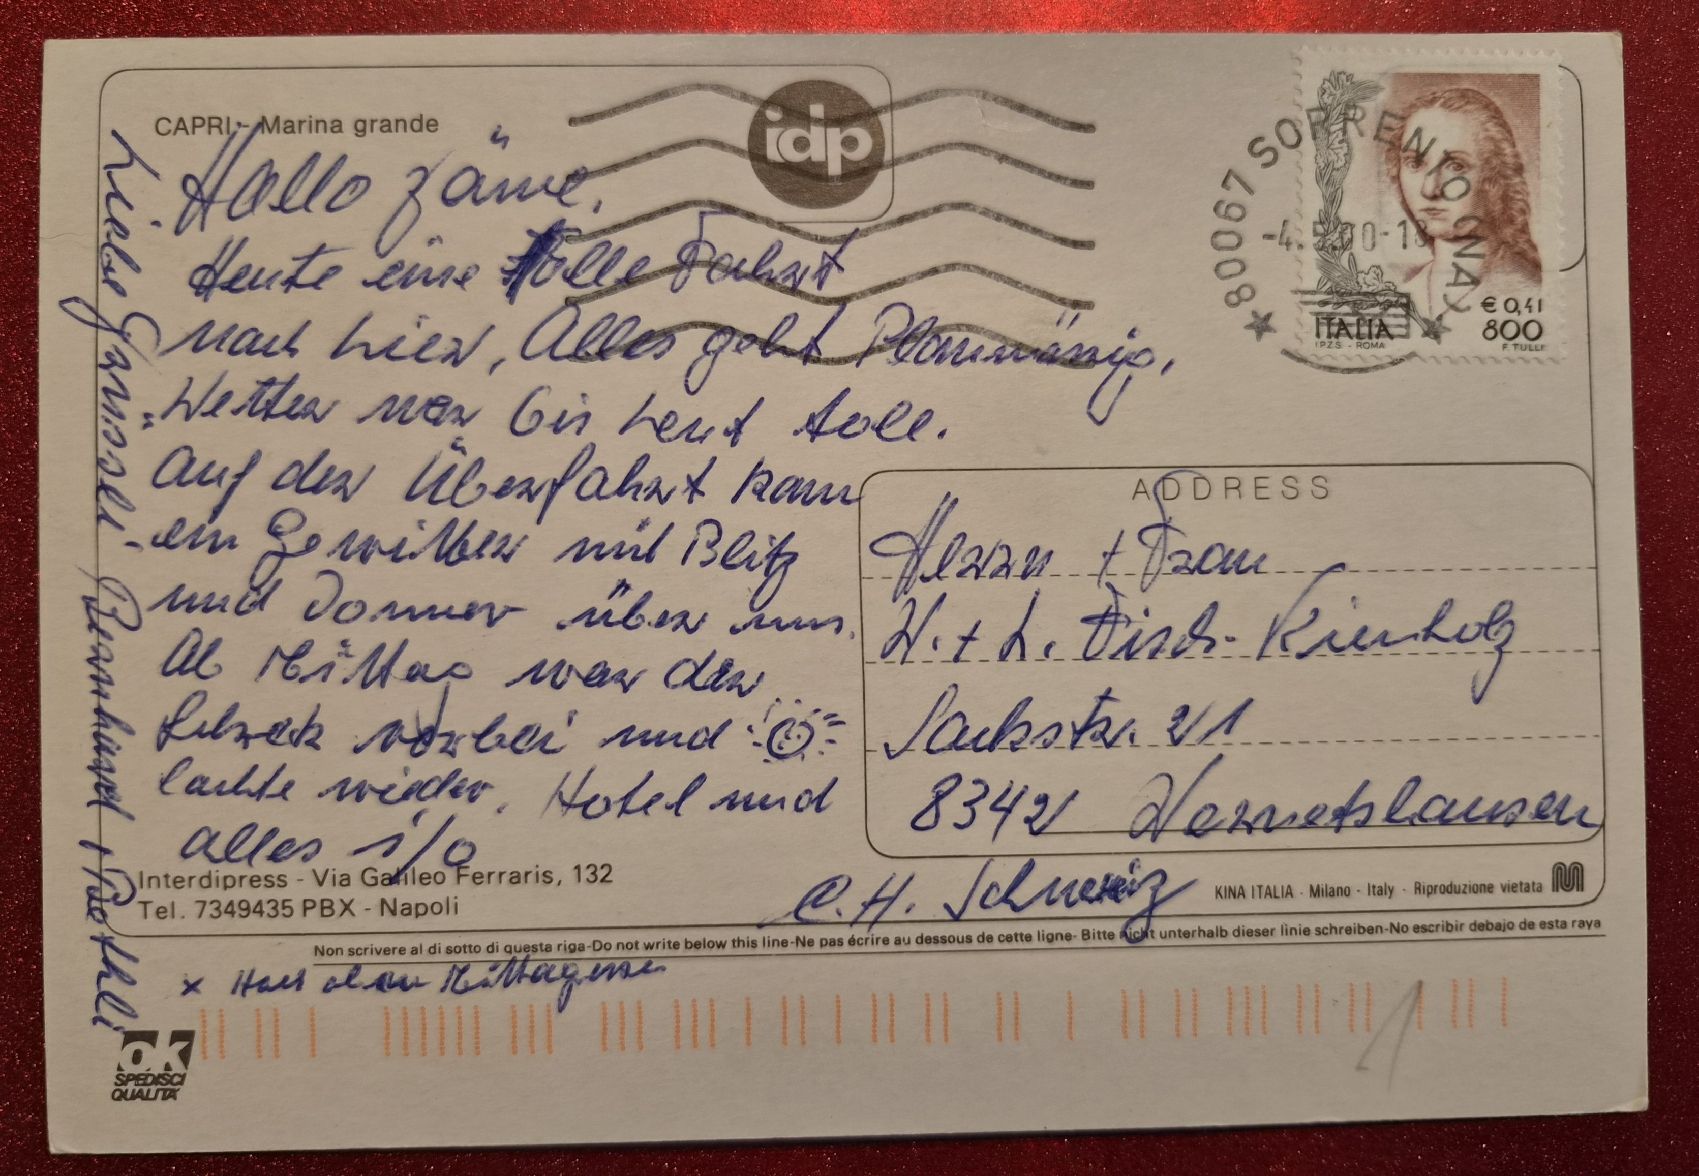 CAPRI - Marina grande
idp
Hallo zäme,
Heute eine tolle Fahrt
nach hier, Alles geht Planmässig,
Wetter war bis heut toll.
Auf der Überfahrt kam
ein Gewitter mit Blitz
und Donner über uns.
Ab Mittag war der
Schreck vorbei und
lachte wieder. Hotel und
alles i/o
Liebe Grüssli. Bernhard + Bethli
Interdipress - Via Galileo Ferraris, 132
Tel. 7349435 PBX - Napoli
80067 SORRENTO (NA)
ITALIA
I.P.Z.S. - ROMA
€ 0,41
800
F. TULLI
ADDRESS
Herrn + Frau
W. + L. Fisch-Kienholz
Sackstr. 21
8342 Wernetshausen
C.H. Schweiz
KINA ITALIA - Milano - Italy - Riproduzione vietata
Non scrivere al di sotto di questa riga-Do not write below this line-Ne pas écrire au dessous de cette ligne- Bitte nicht unterhalb dieser linie schreiben-No escribir debajo de esta raya
x nach Mittagessen
ok
SPEDISCI
QUALITÀ